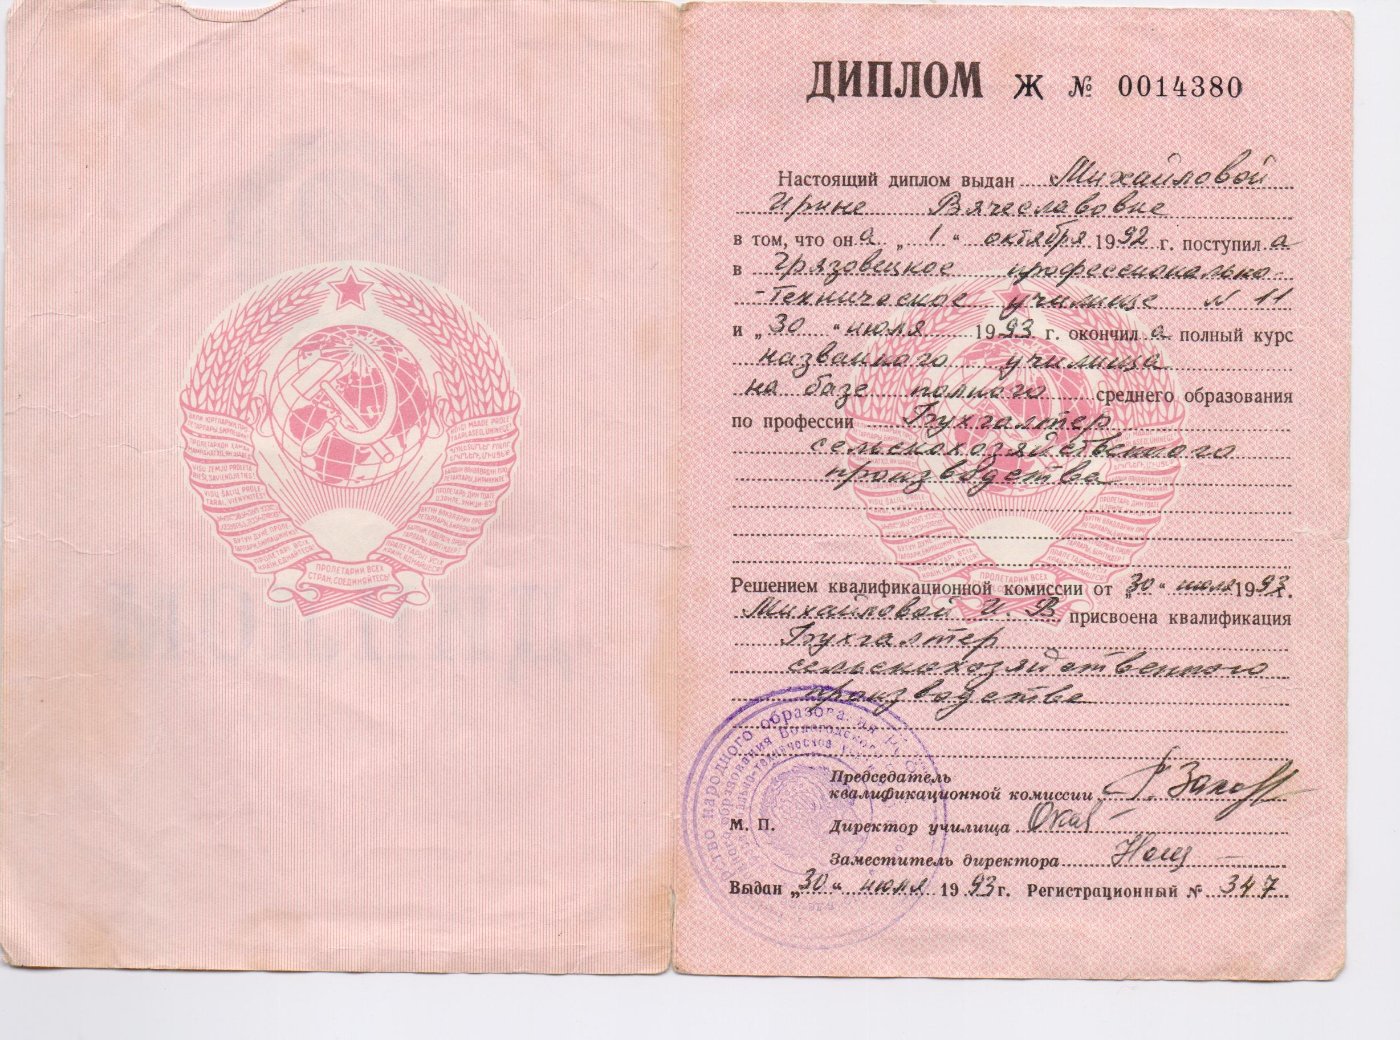 ПРОЛЕТАРИИ ВСЕХ
СТРАН, СОЕДИНЯЙТЕСЬ!
ДИПЛОМ Ж № 0014380
Настоящий диплом выдан Михайловой
Ирине Вячеславовне
в том, что он а „ 1 “ октября 1992 г. поступил а
в Грязовецкое профессионально-
-техническое училище N 11
и „ 30 “ июля 1993 г. окончил а полный курс
названного училища
на базе полного среднего образования
по профессии Бухгалтер
сельскохозяйственного
производства
ПРОЛЕТАРИИ ВСЕХ
Решением квалификационной комиссии от „ 30 “ июля 1993 г.
Михайловой И В присвоена квалификация
Бухгалтер
сельскохозяйственного
производства
народного образования
образования Вологодского
Председатель
квалификационной комиссии
М. П. Директор училища
Заместитель директора
Выдан „ 30 “ июля 1993 г. Регистрационный № 347